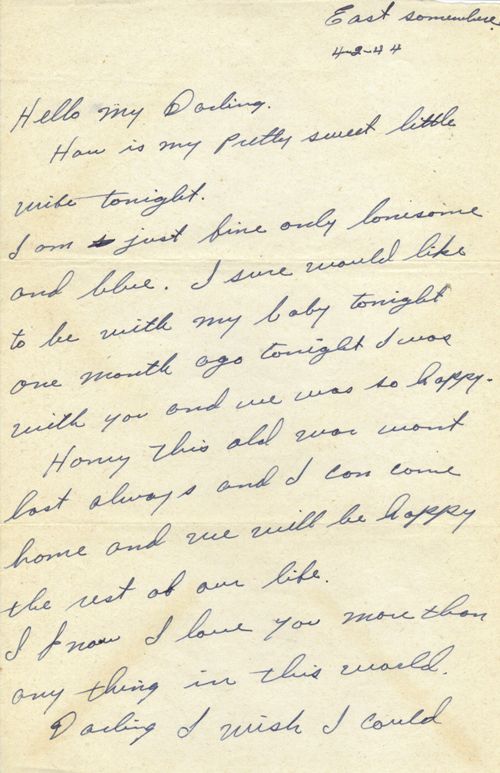 East somewhere
4-2-44
Hello my Darling.
How is my pretty sweet little
wife tonight.
I am just fine only lonesome
and blue. I sure would like
to be with my baby tonight
one month ago tonight I was
with you and we was so happy.
Honey this old war wont
last always and I can come
home and we will be happy
the rest of our life.
I know I love you more than
any thing in this world.
Darling I wish I could